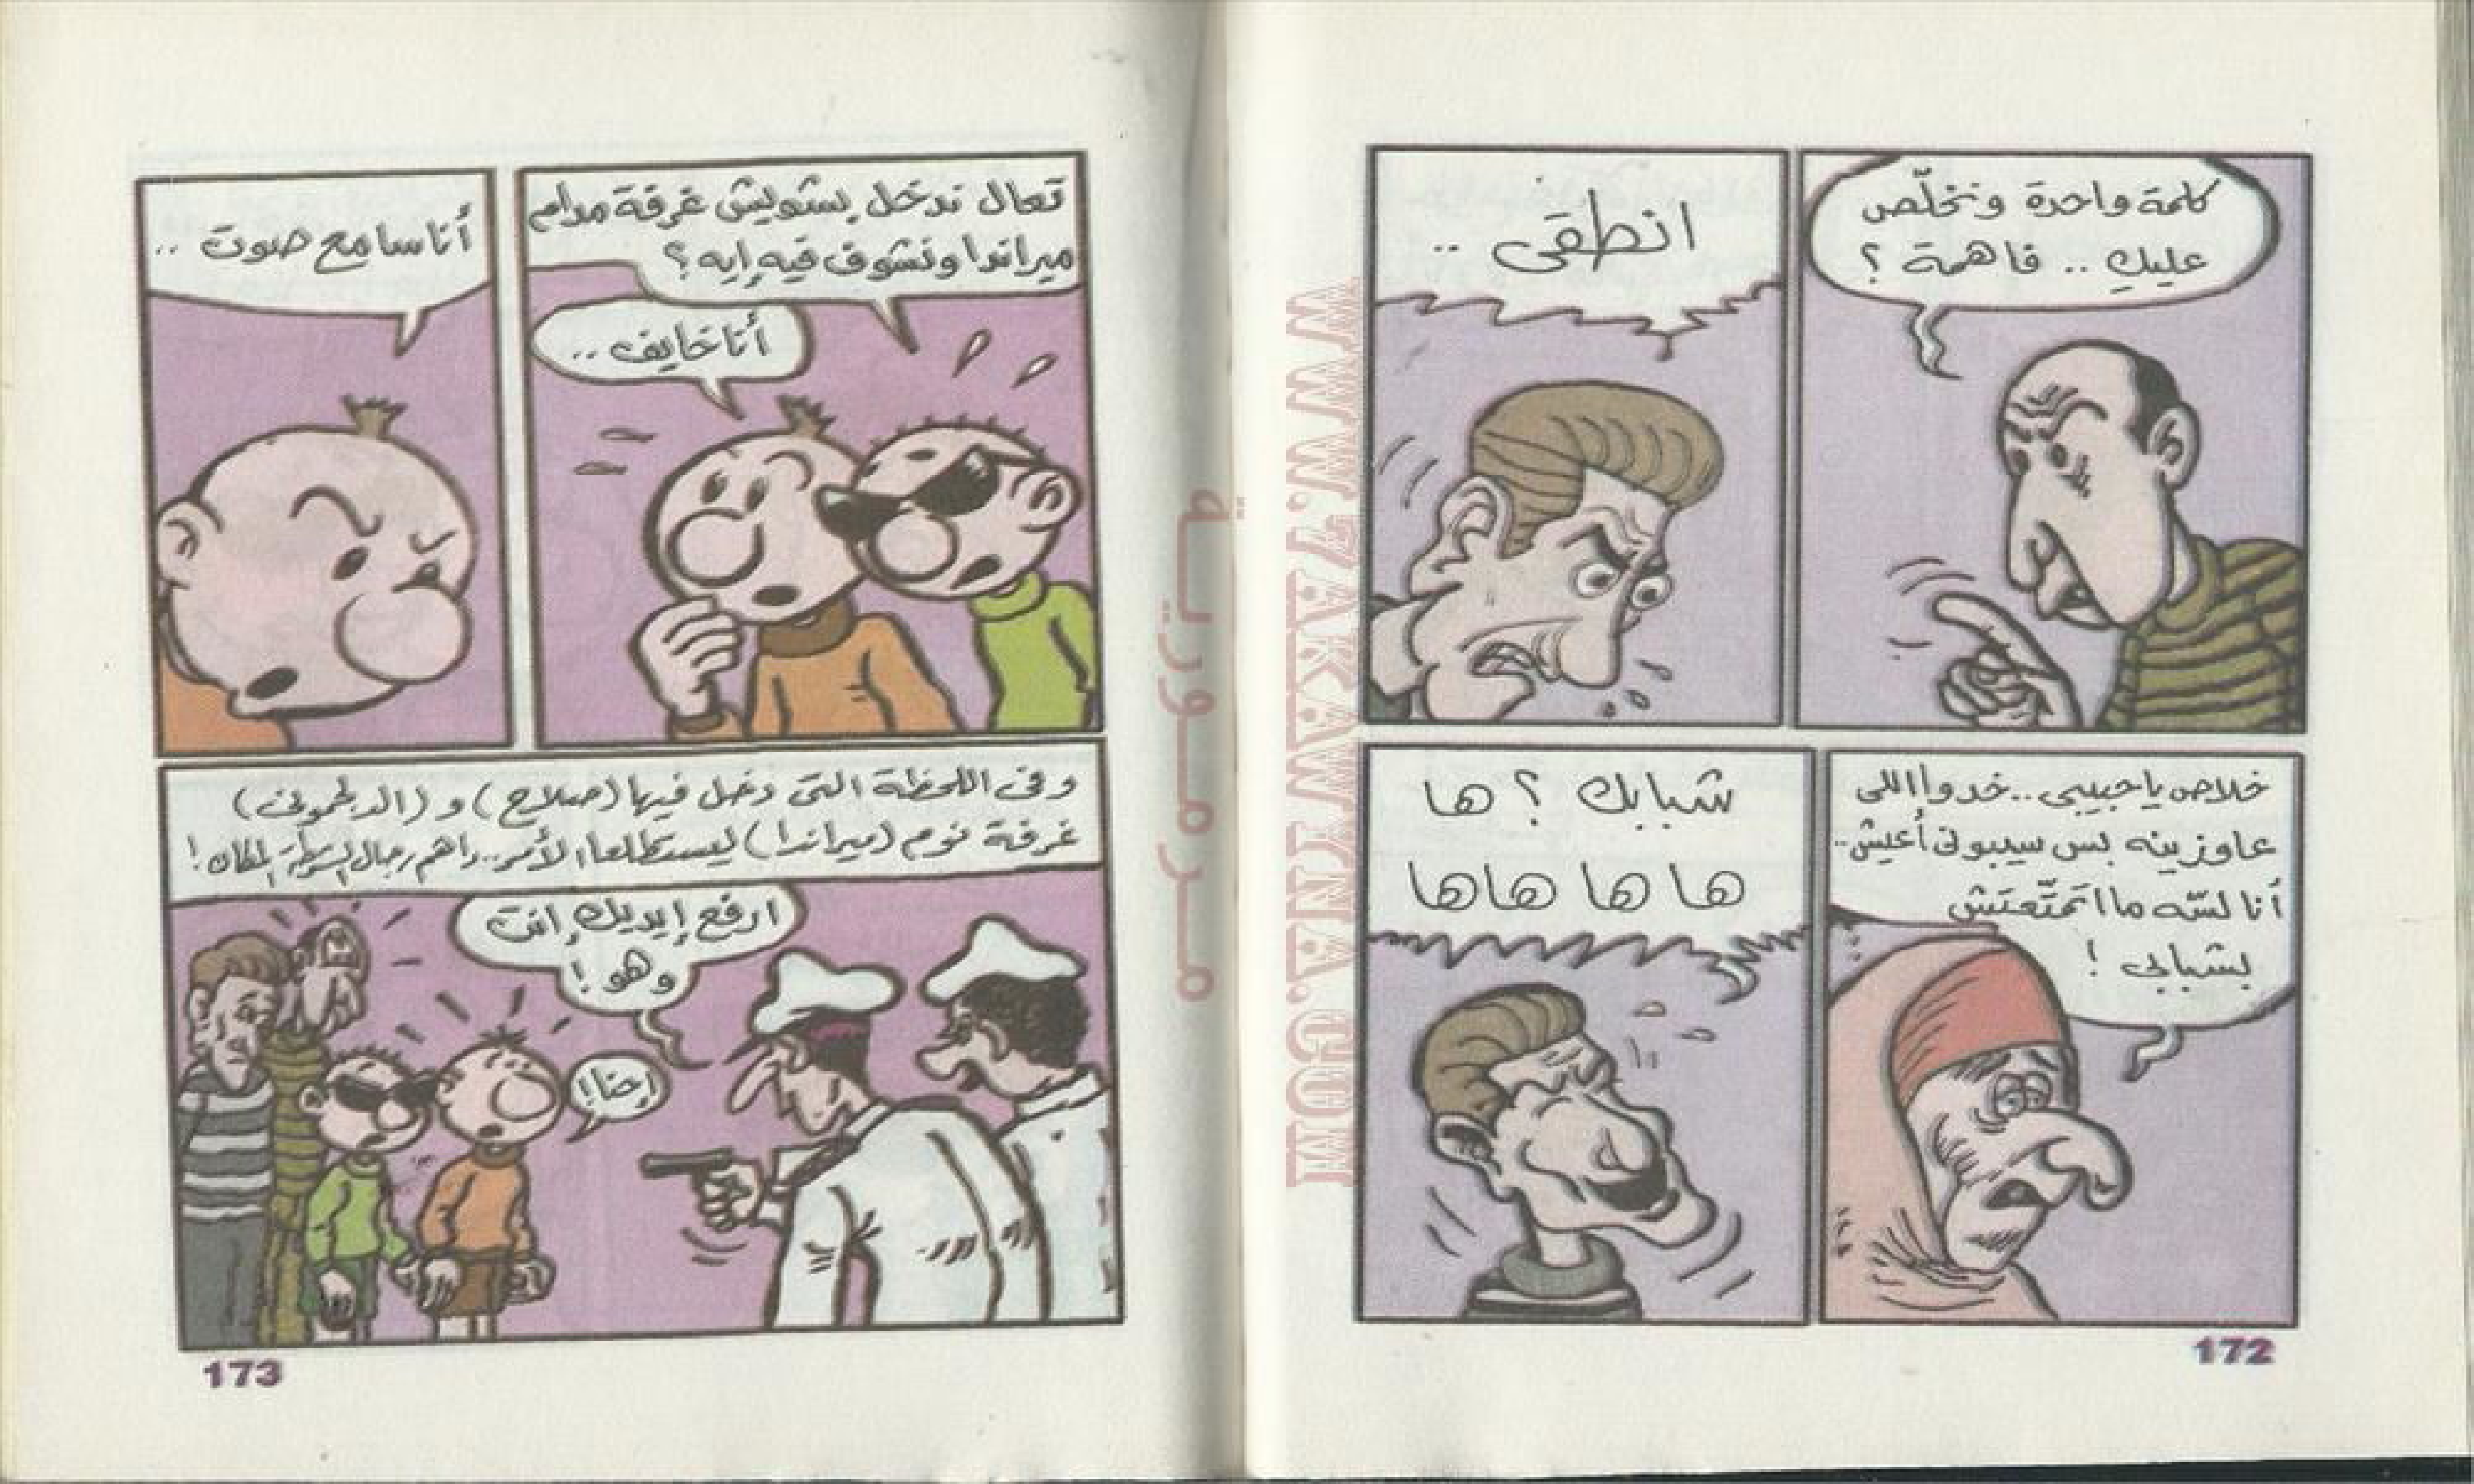 كلمة واحدة ونخلّص
عليكِ .. فاهمة ؟
انطقى ..
خلاص ياحبيبى .. خدوا اللى
عاوزينه بس سيبونى أعيش ..
أنا لسّه ما اتمتّعتش
بشبابى !
شبابك ؟ ها
ها ها هاها
172
تعال ندخل بشويش غرفة مدام
ميراندا ونشوف فيه إيه ؟
أنا خايف ..
أنا سامع صوت ..
وفى اللحظة التى دخل فيها (صلاح) و (الدبلحمونى)
غرفة نوم (ميراندا) ليستطلعا الأمر .. داهم رجال الشرطة المكان !
ارفع إيديك إنت
وهو !
إحنا !
173
WWW.7AKAWINA.COM
مرمورية